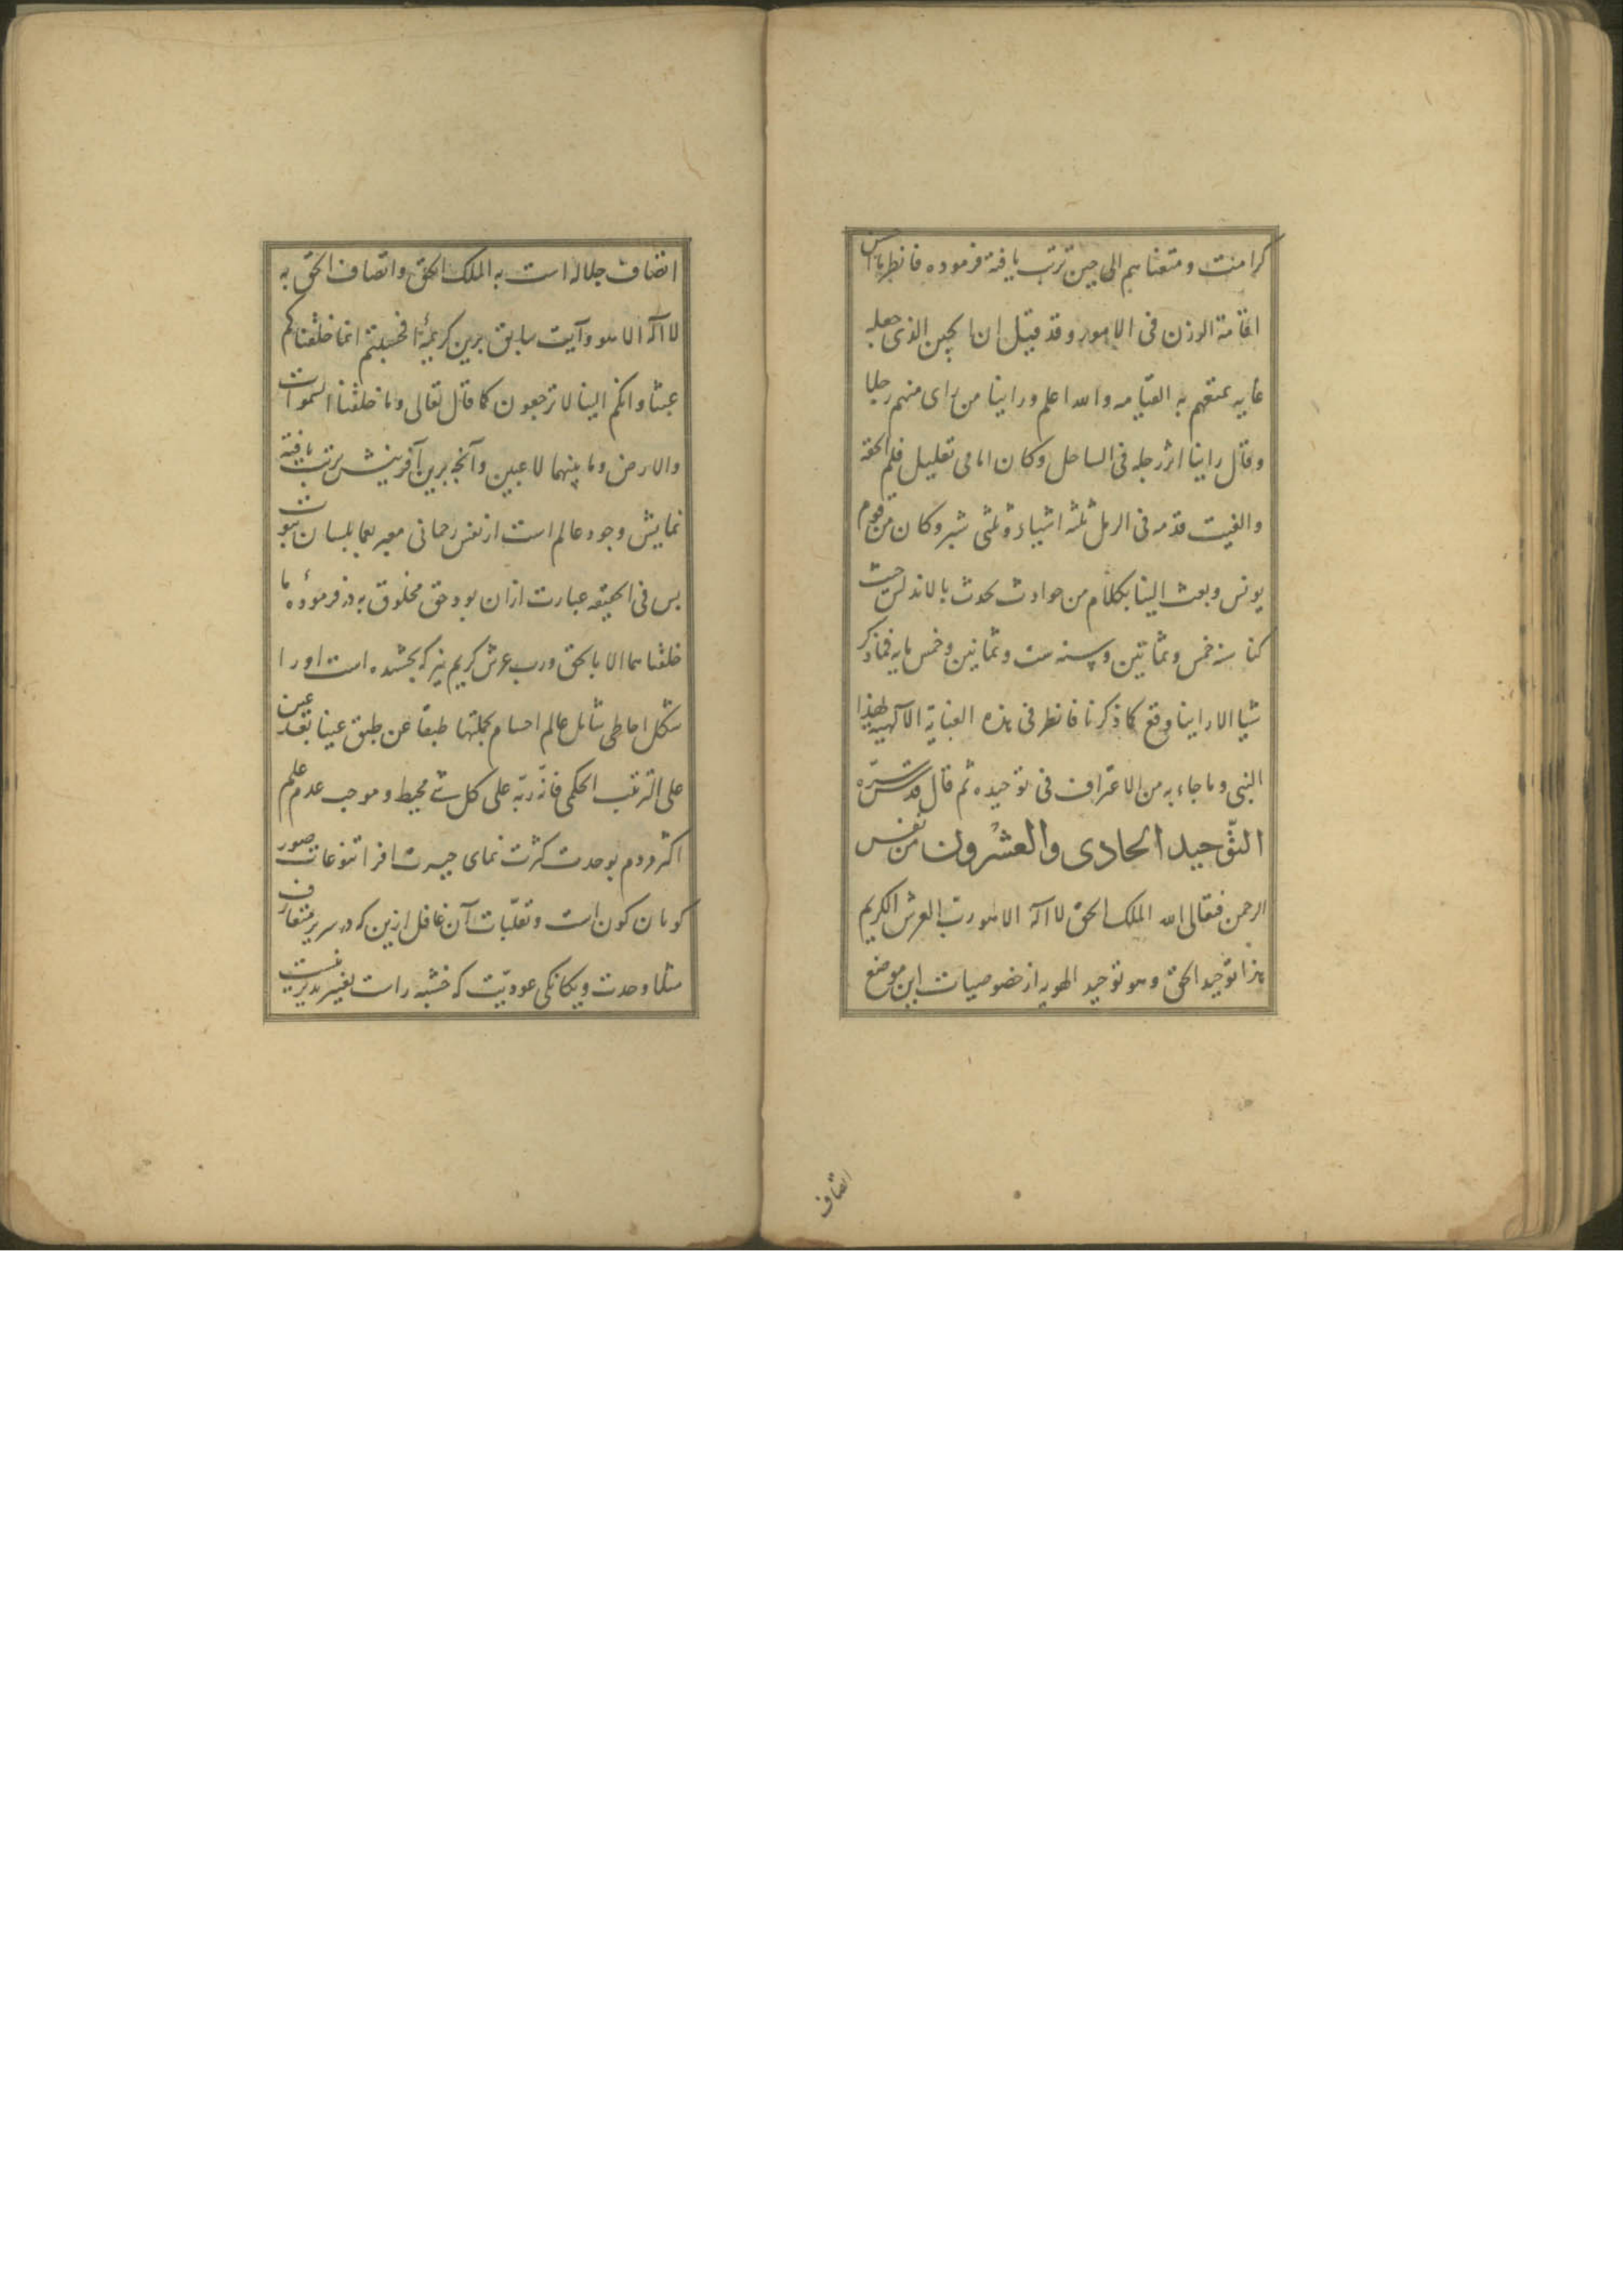 کرامنت و متعناهم الی حین ترتب یافته فرموده فانظر ما احسن
اقامة الوزن فی الامور و قد قیل ان الحین الذی جعله
غایه تمتعهم به القیامه والله اعلم و راینا من رای منهم رجلا
وقال راینا اثر رجله فی الساحل و کان امامی بقلیل فلم الحقه
والفیت قدمه فی الرمل ثلثه اشبار و ثلثی شبر و کان من قوم
یونس و بعث الینا بکلام من حوادث تحدث بالاندلس حیث
کنا سنه خمس و ثمانین و سنه ست و ثمانین و خمس مایه فما ذکر
شیا الا راینا وقع کما ذکرنا فانظر فی هذه العنایة الآلهیه لهذا
النبی و ما جاء به من الاعتراف فی توحیده ثم قال قدس سره
التوحید الحادی والعشرون من نفس
الرحمن فتعالی الله الملک الحق لا اله الا هو رب العرش الکریم
هذا توحید الحق و هو توحید الهویه از خصوصیات این موضع
اتصاف
اتصاف جلاله است به الملک الحق و اتصاف الحق به
لا اله الا هو و آیت سابق برین کریمهٔ افحسبتم انما خلقناکم
عبثا وانکم الینا لا ترجعون کما قال تعالی وما خلقنا السموات
والارض وما بینهما لاعبین و آنچه برین آفرینش ترتب یافته
نمایش وجود عالم است از نفس رحمانی معبر بعما بلسان نبوت
پس فی الحقیقه عبارت ازان بود حق مخلوق به در فرمودهٔ ما
خلقناهما الا بالحق و رب عرش کریم نیز که بخشده است او را
شکل احاطی شامل عالم اجسام بجملتها طبقا عن طبق عینا بعد عین
علی الترتیب الحکمی فانه ربه علی کل شی محیط و موجب عدم علم
اکثر مردم بوحدت کثرت نمای حیرت افزا تنوعات صور
کوناکون کون است و تقلبات آن غافل ازین که در سریر متعارف
مثلا وحدت و یکانکی عودیت که خشبه راست تغیر پذیر نیست